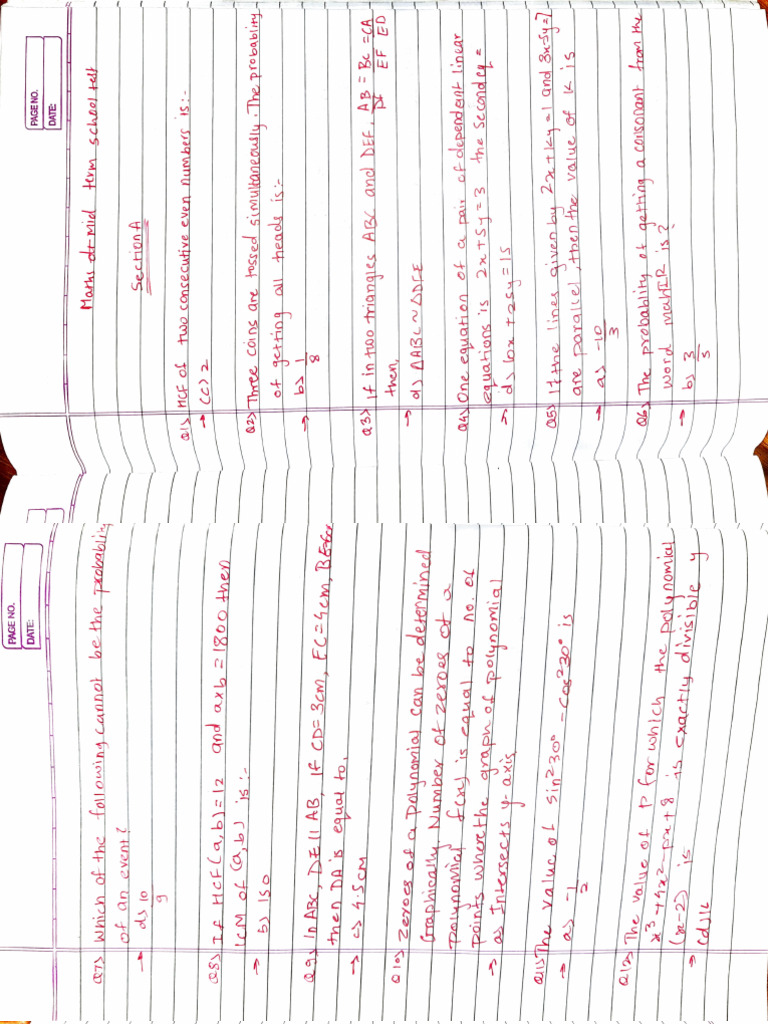 PAGE NO.
DATE:
Maths dt-mid term school test
Section A
Q1) HCF of two consecutive even numbers is:-
→ (c) 2
Q2) Three coins are tossed simultaneously. The probablity
of getting all heads is:-
→ b) 1/8
Q3) If in two triangles ABC and DEF, AB/DF = BC/EF = CA/ED
then,
→ d) ΔABC ~ ΔDFE
Q4) One equation of a pair of dependent linear
equations is 2x+5y=3 the second eq =
→ d) 10x+25y=15
Q5) If the lines given by 2x+ky=1 and 3x-5y=7
are parallel, then the value of k is
→ a) -10/3
Q6) The probablity of getting a consonant from the
word mahIR is?
→ b) 3/5
PAGE NO.
DATE:
Q7) Which of the following cannot be the probablity
of an event?
→ d) 10/9
Q8) If HCF(a,b)=12 and axb=1800 then
LCM of (a,b) is:-
→ b) 150
Q9) In ABC, DE || AB, If CD=3cm, EC=4cm, BE=6cm
then DA is equal to,
→ c) 4.5cm
Q10) Zeroes of a polynomial can be determined
Graphically. Number of zeroes of a
polynomial f(x) is equal to no. of
points where the graph of polynomial
→ a) Intersects y-axis
Q11) The value of sin²30° - cos²30° is
→ a) -1/2
Q12) The value of p for which the polynomial
x³+4x²-px+8 is exactly divisible y
(x-2) is
→ (d) 16